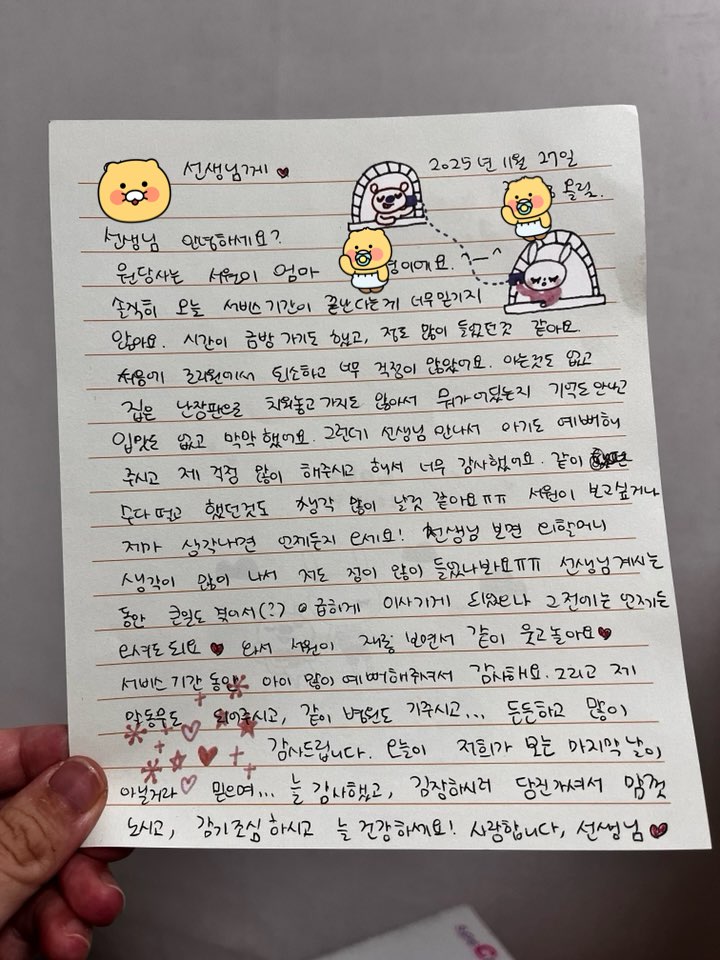 선생님께
2025년 11월 27일
올림.
선생님 안녕하세요?
원당사는 서원이 엄마 영이에요. ^-^
솔직히 오늘 서비스 기간이 끝난다는게 너무 믿기지
않아요. 시간이 금방 가기도 했고, 정도 많이 들었던것 같아요.
처음에 조리원에서 퇴소하고 너무 걱정이 많았어요. 아는것도 없고
집은 난장판으로 치워놓고 가지도 않아서 뭐가어딨는지 기억도안나고
입맛도 없고 막막했어요. 그런데 선생님 만나서 아기도 예뻐해
주시고 제 걱정 많이 해주시고 해서 너무 감사했어요. 같이
수다 떨고 했던것도 생각 많이 날것 같아요ㅠㅠ 서원이 보고싶거나
저마 생각나면 언제든지 오세요! 선생님 보면 외할머니
생각이 많이 나서 저도 정이 많이 들었나봐요ㅠㅠ 선생님 계시는
동안 큰일도 겪어서(?) 급하게 이사가게 되었으나 그전에는 언제든
오셔도 되요 ♥ 와서 서원이 재롱 보면서 같이 웃고 놀아요♥
서비스 기간 동안 아이 많이 예뻐해주셔서 감사해요. 그리고 제
말동무도 되어주시고, 같이 병원도 가주시고... 든든하고 많이
감사드립니다. 오늘이 저희가 보는 마지막 날이
아닐거라 믿으며... 늘 감사했고, 김장하시러 당진가셔서 맘껏
노시고, 감기조심 하시고 늘 건강하세요! 사랑합니다, 선생님 ♥